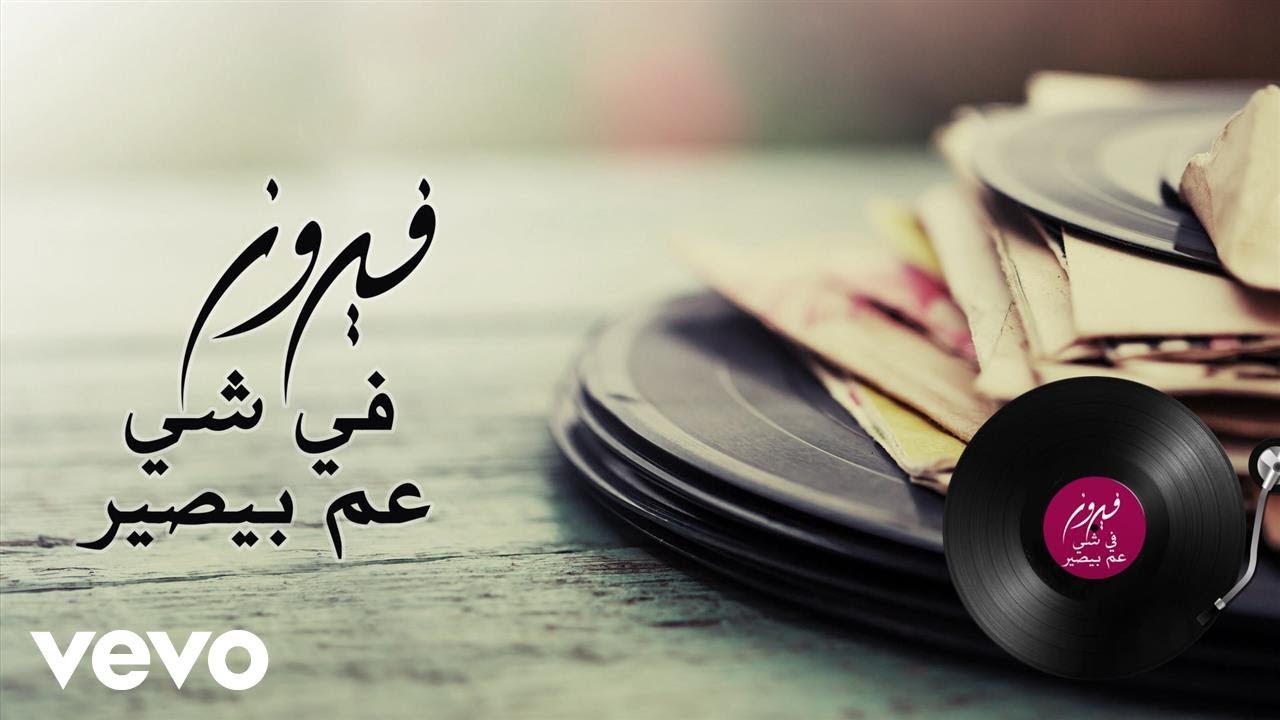 فيروز
في شي
عم بيصير
فيروز
في شي
عم بيصير
vevo